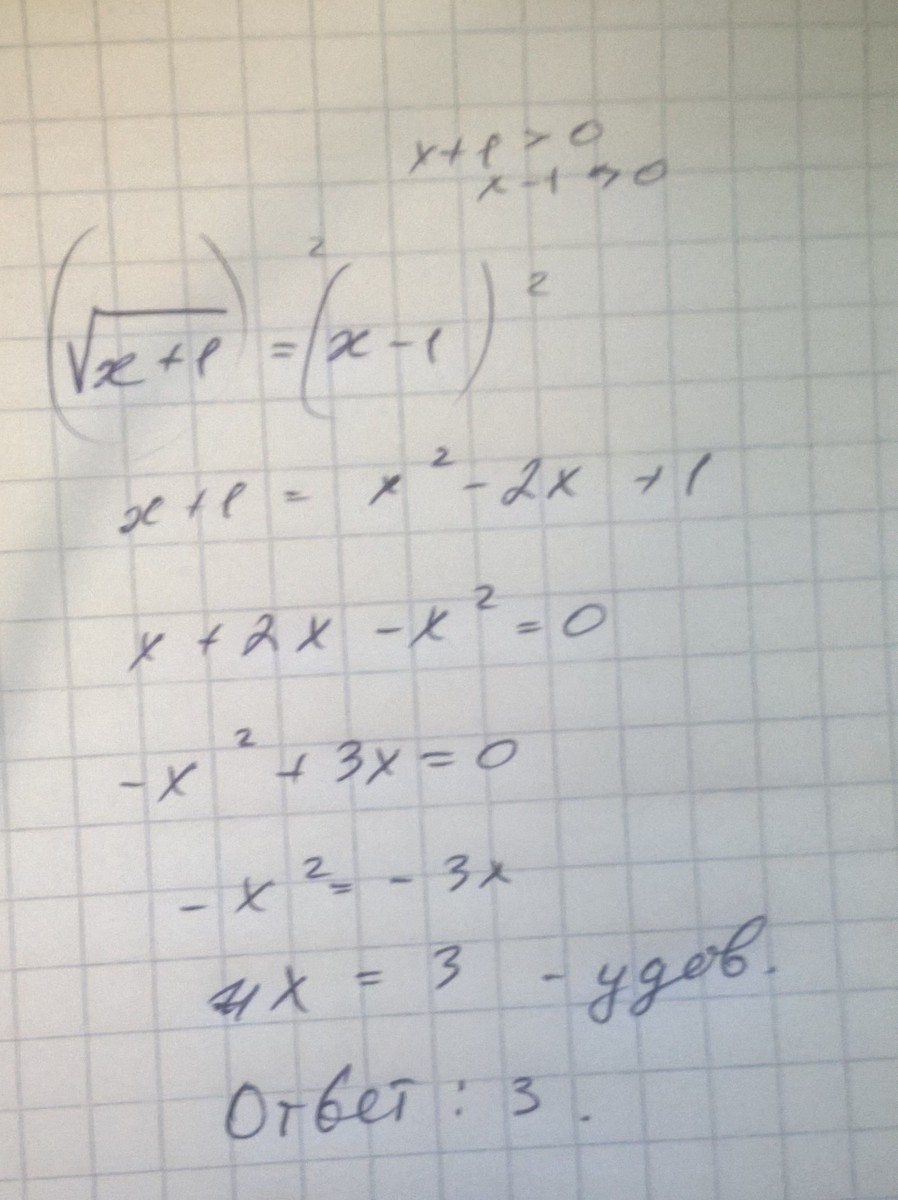 x+1 > 0
x-1 > 0
(√x+1)² = (x-1)²
x+1 = x² - 2x + 1
x + 2x - x² = 0
-x² + 3x = 0
-x² = -3x
x = 3 - удов.
Ответ : 3.